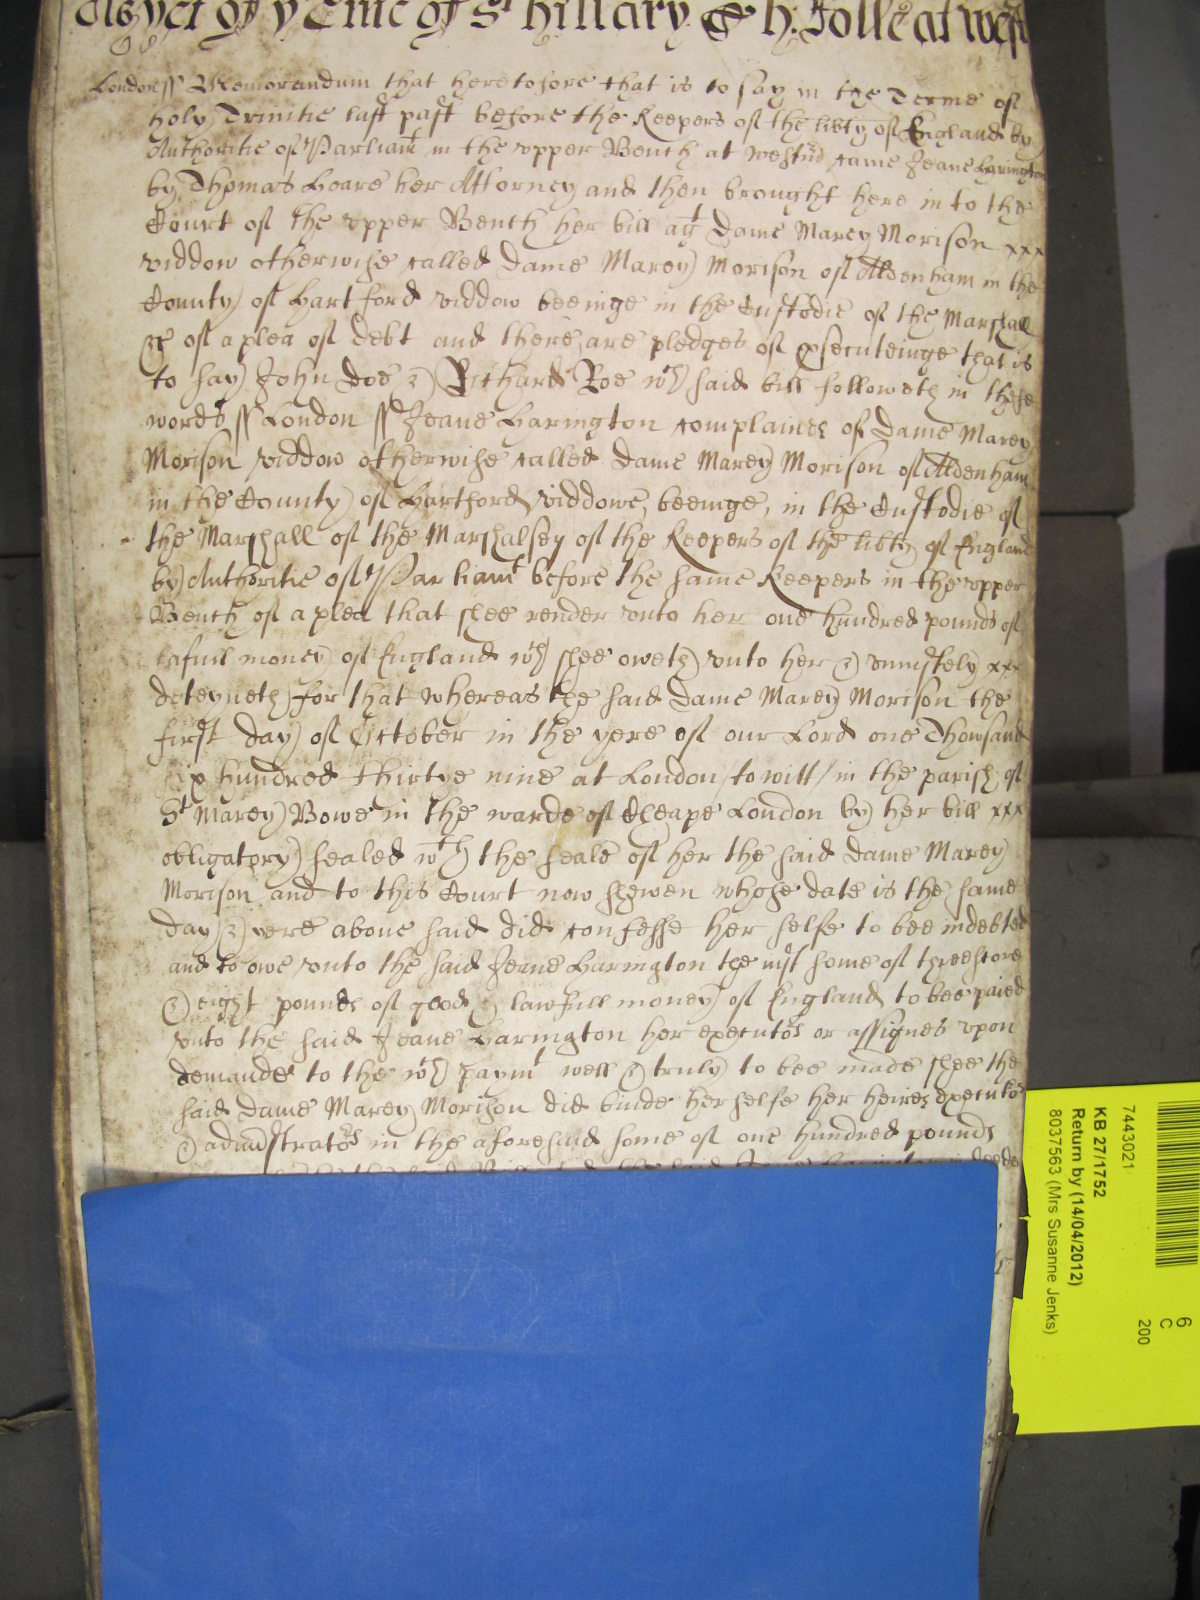 of ye Tme of St Hillary & h: Rolle at West
London ss Memorandum that heretofore that is to say in the Terme of
holy Trinitie last past before the Keepers of the libty of England by
Authoritie of Parliamt in the vpper Bench at Westmd came Jeane Harington
by Thomas Hoare her Attorney and then brought here in to the
Court of the vpper Bench her bill agt Dame Marey Morison xxx
widdow otherwise called Dame Marey Morison of Aldenham in the
County of Hartford widdow beeinge in the Custodie of the Marshall
&c of a plea of debt and there are pledges of psecuteinge that is
to say John Doe & Richard Roe wch said bill followeth in these
words ss London ss Jeane Harington complaines of Dame Marey
Morison widdow otherwise called Dame Marey Morison of Aldenham
in the County of Hartford widdowe, beeinge, in the Custodie of
the Marshall of the Marshalsey of the Keepers of the libty of England
by Authoritie of Parliamt before the same Keepers in the vpper
Bench of a plea that shee render vnto her one hundred pounds of
lafull money of England wch shee oweth vnto her & vniustely xxx
deteyneth for that whereas the said Dame Marey Morison the
first day of October in the yere of our Lord one Thowsand
six hundred thirtye nine at London / to witt / in the parish of
St Marey Bowe in the warde of Cheape London by her bill xxx
obligatory sealed wth the seale of her the said Dame Marey
Morison and to this Court now shewen whose date is the same
day & yere aboue said did confesse her selfe to bee indebted
and to owe vnto the said Jeane Harington the iust some of threescore
& eight pounds of good & lawfull money of England to bee paied
vnto the said Jeane Harington her executors or assignes vpon
demande to the wch paymt well & truly to bee made shee the
said Dame Marey Morison did binde her selfe her heires executors
& administrators in the aforesaid some of one hundred pounds
7443021
KB 27/1752
Return by (14/04/2012)
8037563 (Mrs Susanne Jenks)
6
C
200